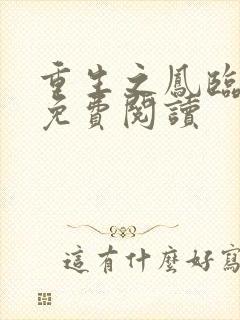 重生之鳳臨
免費閱讀
這有什麼好寫